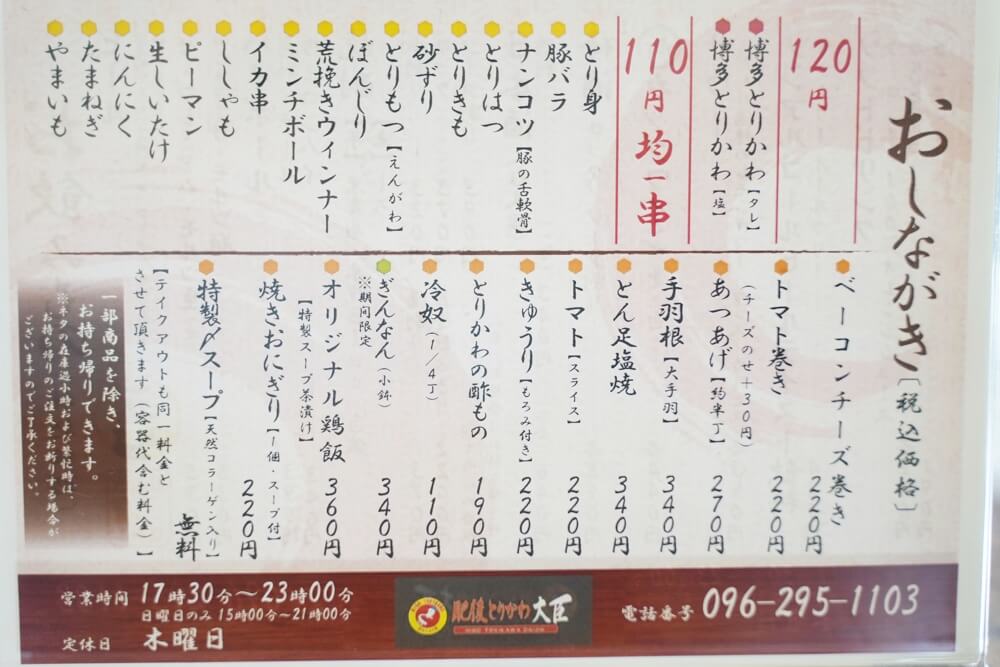 おしながき〔税込価格〕
120円
博多とりかわ【タレ】
博多とりかわ【塩】
110円均一串
とり身
豚バラ
ナンコツ【豚の舌軟骨】
とりはつ
とりきも
砂ずり
とりもつ【えんがわ】
ぼんじり
荒挽きウィンナー
ミンチボール
イカ串
ししゃも
ピーマン
生しいたけ
にんにく
たまねぎ
やまいも
ベーコンチーズ巻き 220円
トマト巻き 220円
（チーズのせ＋30円）
あつあげ【約半丁】 270円
手羽根【大手羽】 340円
とん足塩焼 340円
トマト【スライス】 220円
きゅうり【もろみ付き】 220円
とりかわの酢もの 190円
冷奴（1/4丁） 110円
ぎんなん（小鉢） 340円
※期間限定
オリジナル鶏飯 360円
【特製スープ茶漬け】
焼きおにぎり【1個・スープ付】 220円
特製〆スープ【天然コラーゲン入り】 無料
【テイクアウトも同一料金と
させて頂きます（容器代含む料金）】
一部商品を除き、
お持ち帰りできます。
※ネタの在庫過小時および繁忙時は、
お持ち帰りのご注文をお断りする場合が
ございますのでご了承ください。
営業時間 17時30分～23時00分
日曜日のみ 15時00分～21時00分
定休日 木曜日
肥後とりかわ大臣
HIGO TORIKAWA DAIJIN
電話番号 096-295-1103